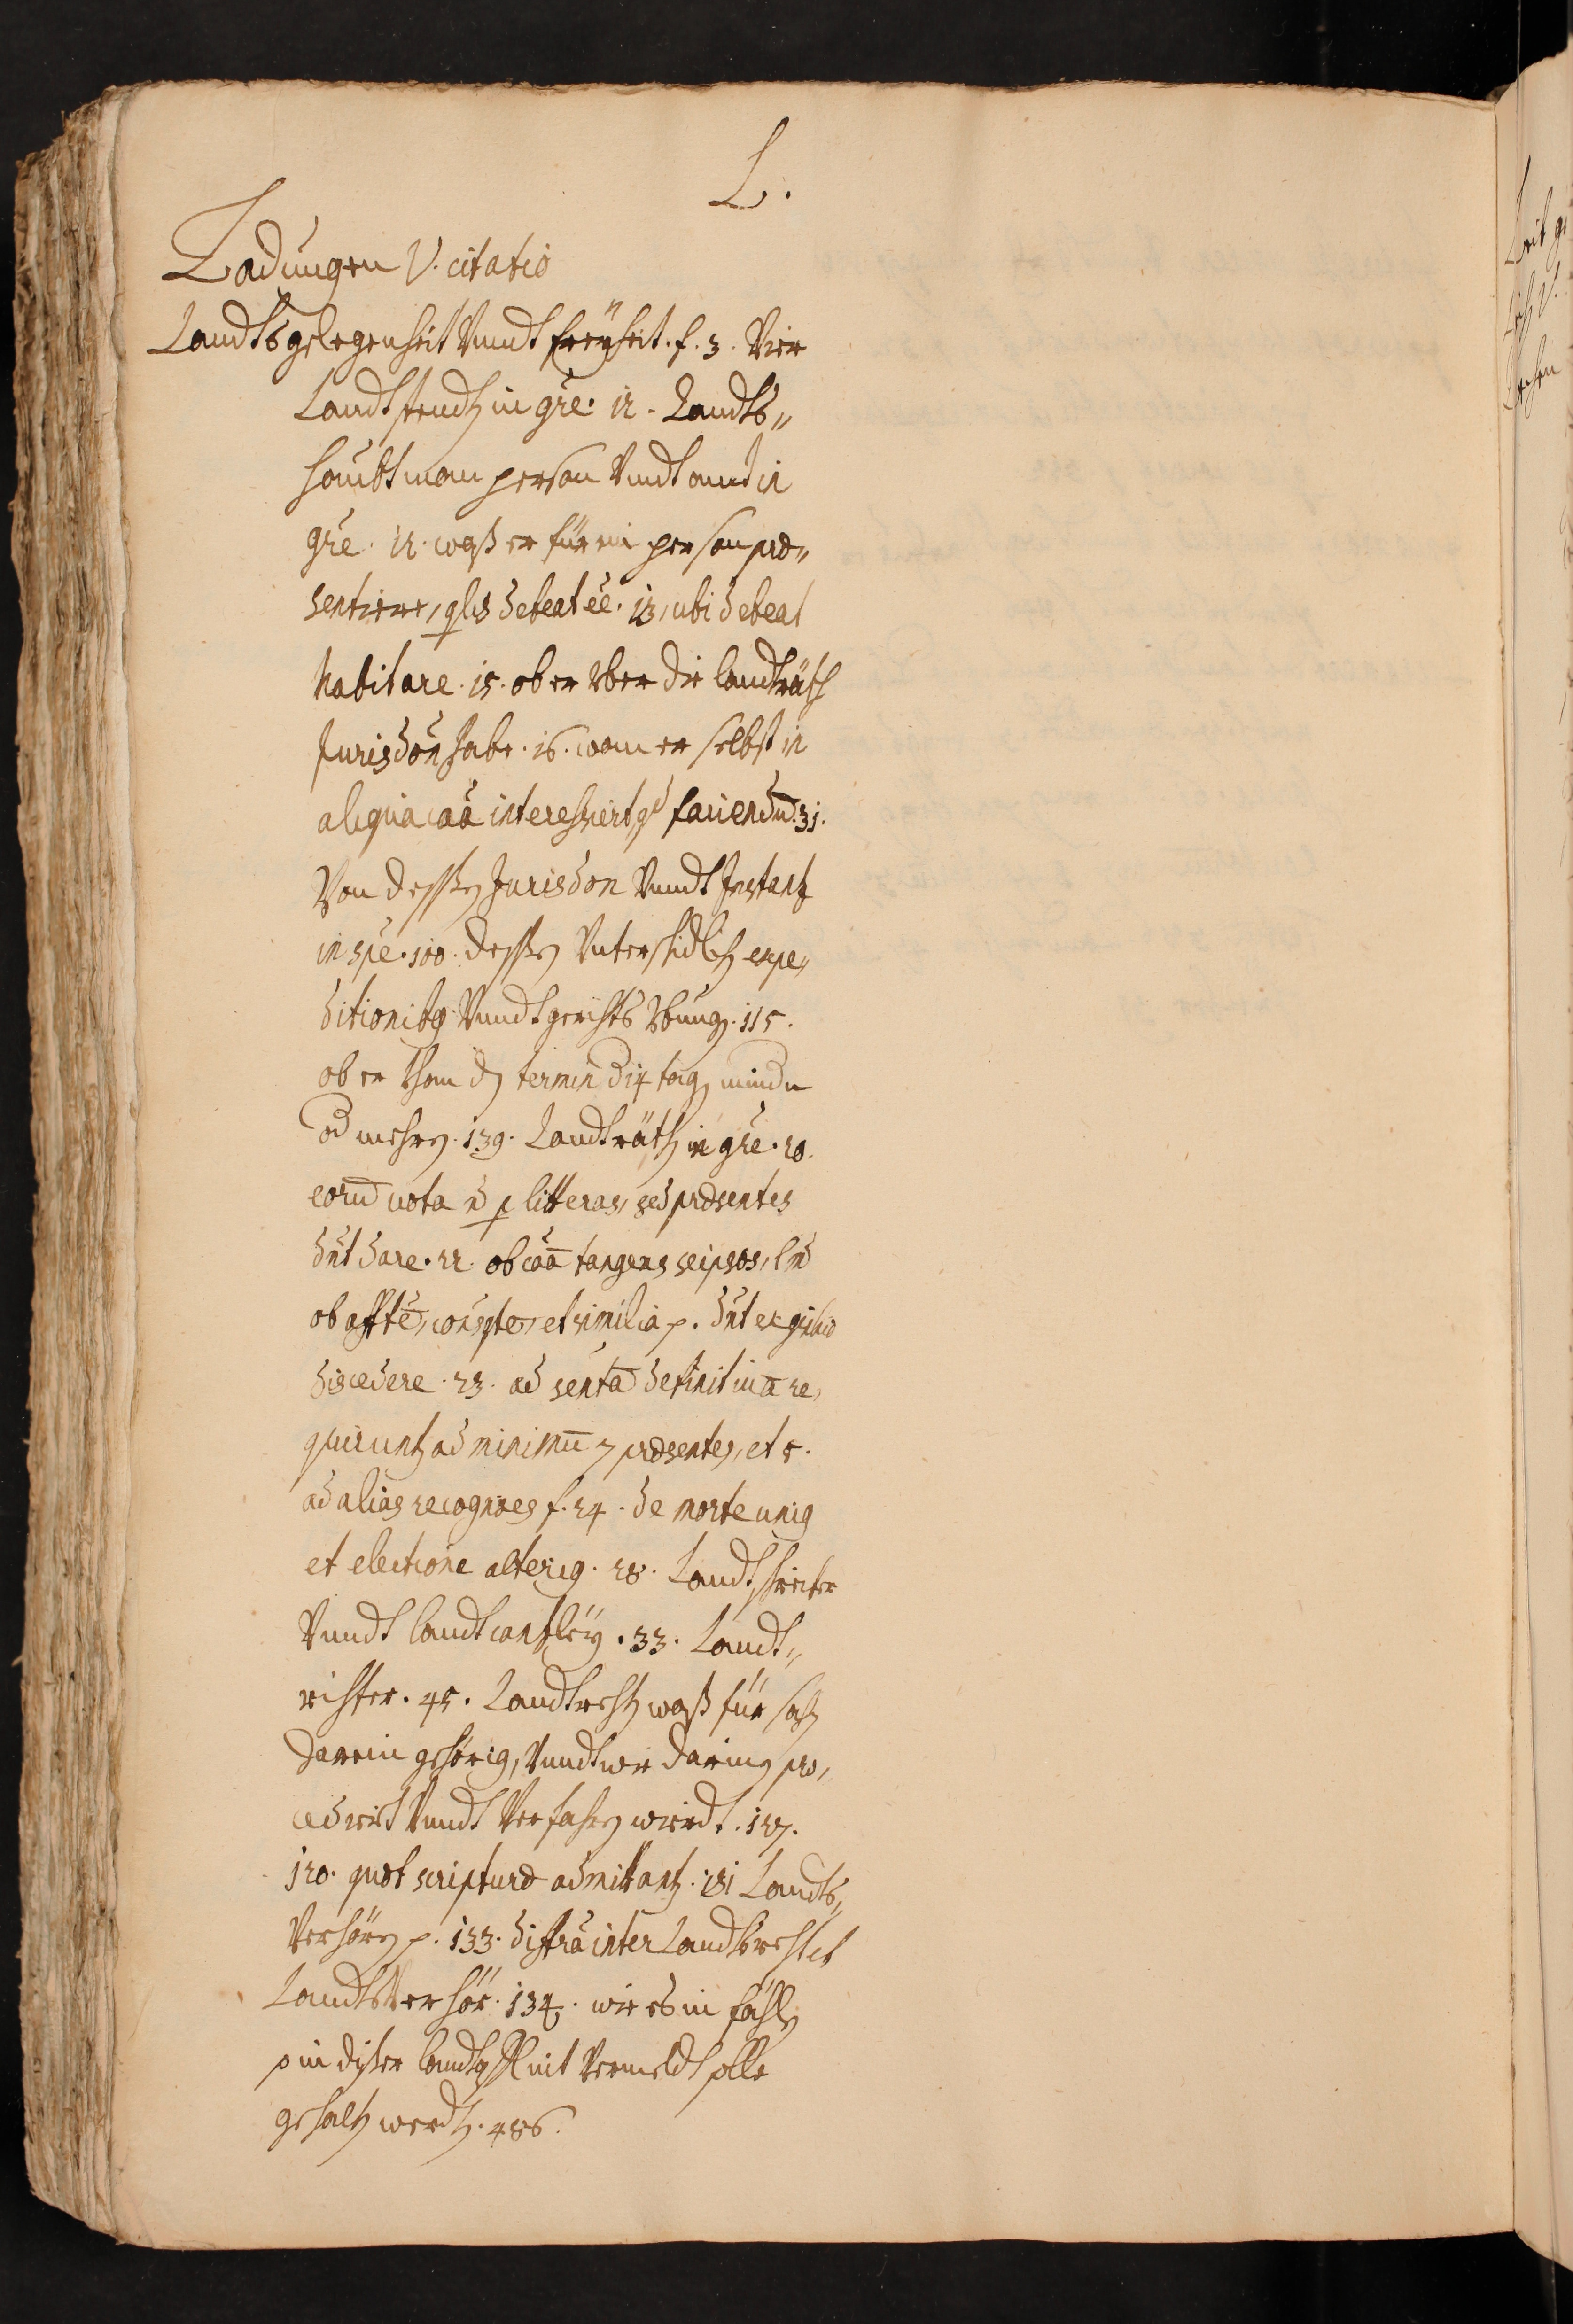 L.
Ladungen V. citatio
Landts gelegenheit Vnndt freyheit. f. 3. Vier
Landtstendt in gre. 12. Landts„
haubtman person Vndt ambt in
gre. 12. waß er für ein person præ„
sentiere, qlis debeat ee. 13, ubi debeat
habitare. 15. ob er Vber die landträth
Jurisdon habe. 16. wan er selbst in
aliqua caa interessiert, qd faciendu. 31.
Von dessen Jurisdon Vnndt Instantz
in spe. 100. dessen Vnterschidlich expe„
ditionibg Vnndt gerichts Vbung. 115.
ob er khan den termin d 14 tag minder
od mehren. 139. Landträth in gre. 20.
eoru vota n p litteras, sed præsentes
dnt dare. 22. ob caa tangens seipsos,
ob affte, et similia p. dnt ex
discedere. 23. ad senta definitiua re„
quirunt ad minimu 7 præsentes, et 5.
ad alias recognoes f. 24. de morte unig
et electione alterig. 28. Landtschreiber
Vnndt landtcantzley. 33. Landt„
richter. 45. Landtrecht waß für sach
darein gehörig, Vnndt wie darinen pro„
cedirt Vnndt Verfahren wierdt. 127.
120. quot scripturæ admittant. 131 Landts„
Verhören p. 133. diffra inter Landtsrecht et
Landts Verhör. 134. wie es in fähln
so in diser landtsh nit Vermeldt solle
gehalten werden. 486.
Leit
Lich V.